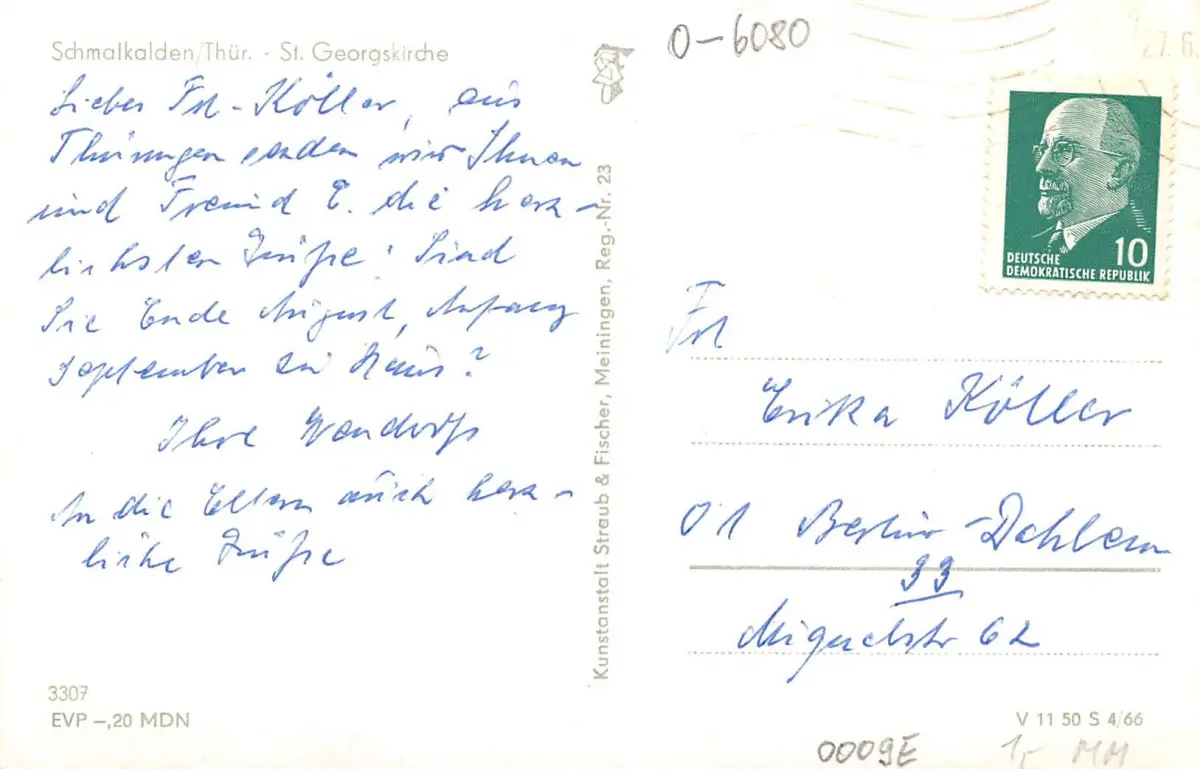 Schmalkalden/Thür. - St. Georgskirche
Liebes Frl. Köller, aus
Thüringen senden wir Ihnen
und Freund E. die herz-
lichsten Grüße! Sind
Sie Ende August, Anfang
September zu Haus?
Ihre
An die Eltern auch herz-
liche Grüße
3307
EVP -,20 MDN
Kunstanstalt Straub & Fischer, Meiningen, Reg.-Nr. 23
O-6080
27.6.
10
DEUTSCHE
DEMOKRATISCHE REPUBLIK
Frl
Erika Köller
01 Berlin-Dahlem
33
Miquelstr 62
V 11 50 S 4/66
0009E 1,- MM